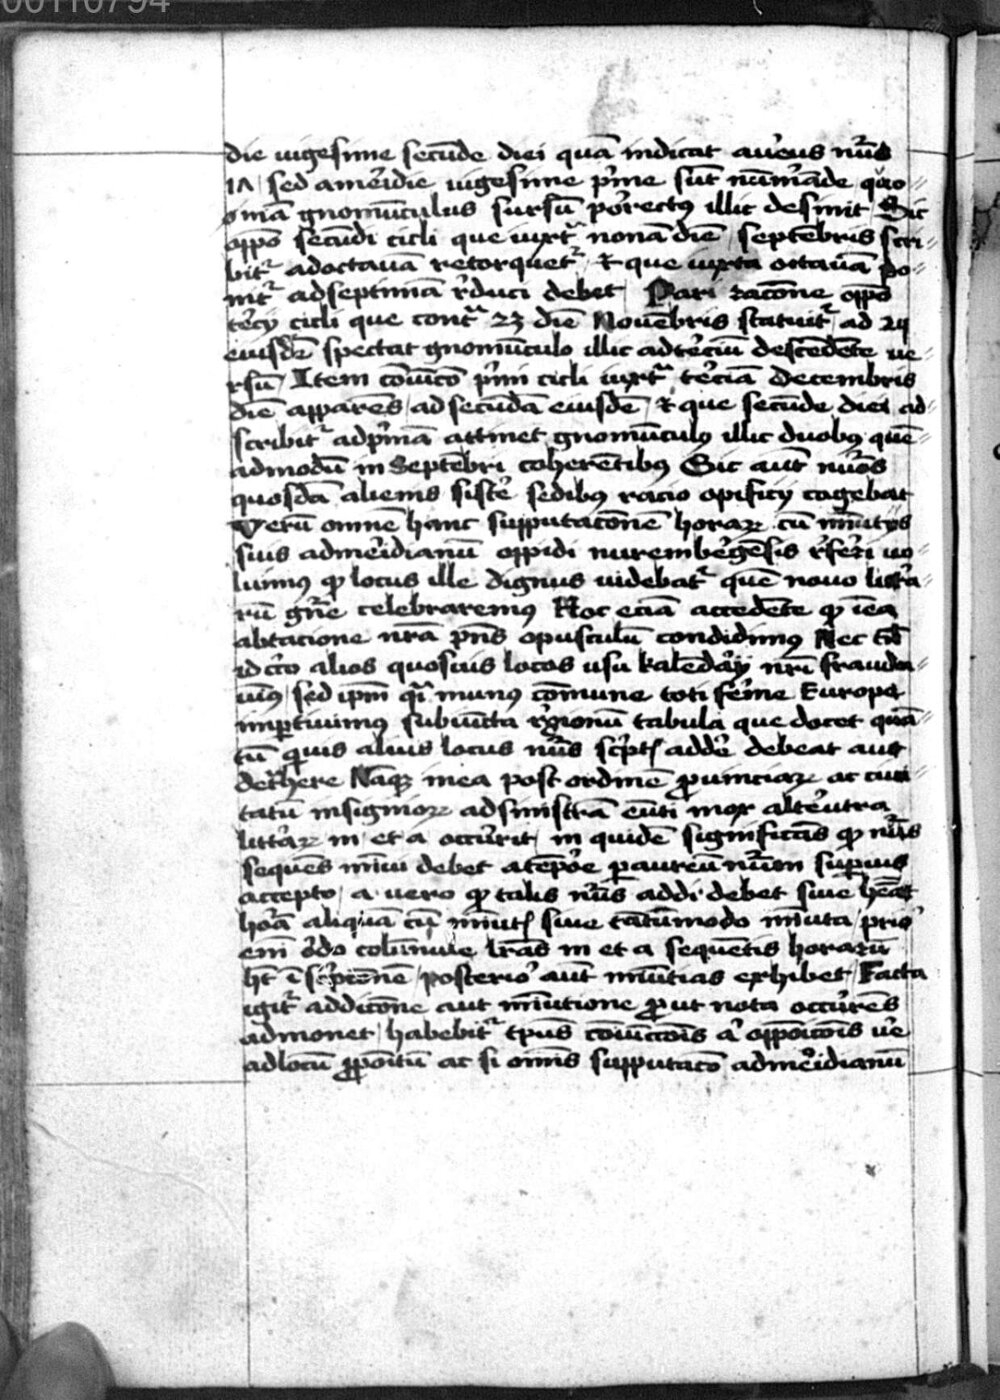 00110794
die uigesime secūde diei quā indicat aureus nūs
1Λ sed a meridie uigesime p̄me sūt nūm̄āde quo=
niā gnomūculus sursū porrectꝯ illic desinit Sic
oppō secūdi cicli que iuxtᷓ nonā diē septēbris scri=
bitᷓ ad octauā retorquetᷓ et que iuxta octauā po=
nitᷓ ad septimā rēduci debet Pari racōne oppō
tercij cicli que contᷓ 23 diē Nouēbris statuitᷓ ad 24
eiusdē spectat gnomūculo illic ad terciū descēdēte ue=
rsū Item cōiūctō p̄mi cicli iuxtᷓ terciā Decembris
diē apparēs ad secūdā eiusdē et que secūde diei ad=
scribitᷓ ad p̄mā attinet gnomūculꝯ illic duobꝯ quē=
admodū in Septēbri coherētibꝯ Sic aūt nūos
quosdā alienis sistere sedibꝯ racio opificij cogebat
Verū omnē hanc supputacōnē horaꝝ cū minutꝭs
suis ad meridianū oppidi nurembergēsis rēferri uo=
luimꝯ ꝙ locus ille dignus uidebatᷓ quē nouo litterā=
rū gn̄e celebraremꝯ Hoc eciā accedēte ꝙ i ea
habitacione nr̄a pn̄s opusculū condidimꝯ Nec tn̄
idcirco alios quosuis locos usu kalēdarij nr̄i frauda=
uimꝯ sed ip̄m qᷓi munꝯ cōmune toti ferme Europe
imꝑtiuimꝯ subiūcta regionū tabula que docet quā=
tū quis alius locus nūs script꞊ addere debeat aut
detrahere Nāqꝫ in ea post ordinē ꝓuinciaꝝ ac ciui=
tatū insigniorꝝ ad sinistrā eūti mox alterutra
litteraꝝ m et a occurrit m quidē significās ꝙ nūs
sequēs minui debet a tēpore ꝑ aureū nūm suꝑius
accepto a uero ꝙ talis nūs addi debet siue hēat
horā aliquā cū minut꞊ siue tātūmodo minuta prior
enī ordo colūnule lr̄as m et a sequētis horarū
ht ī scripcōnē posterior aūt minutias exhibet Facta
igitᷓ addicōne aut minutione ꝓ ut nota occurrēs
admonet habebitᷓ tp̄us cōiūctōis aut oppōitōis uere
ad locū ꝓpoītū ac si oīnis supputacō ad meridianū